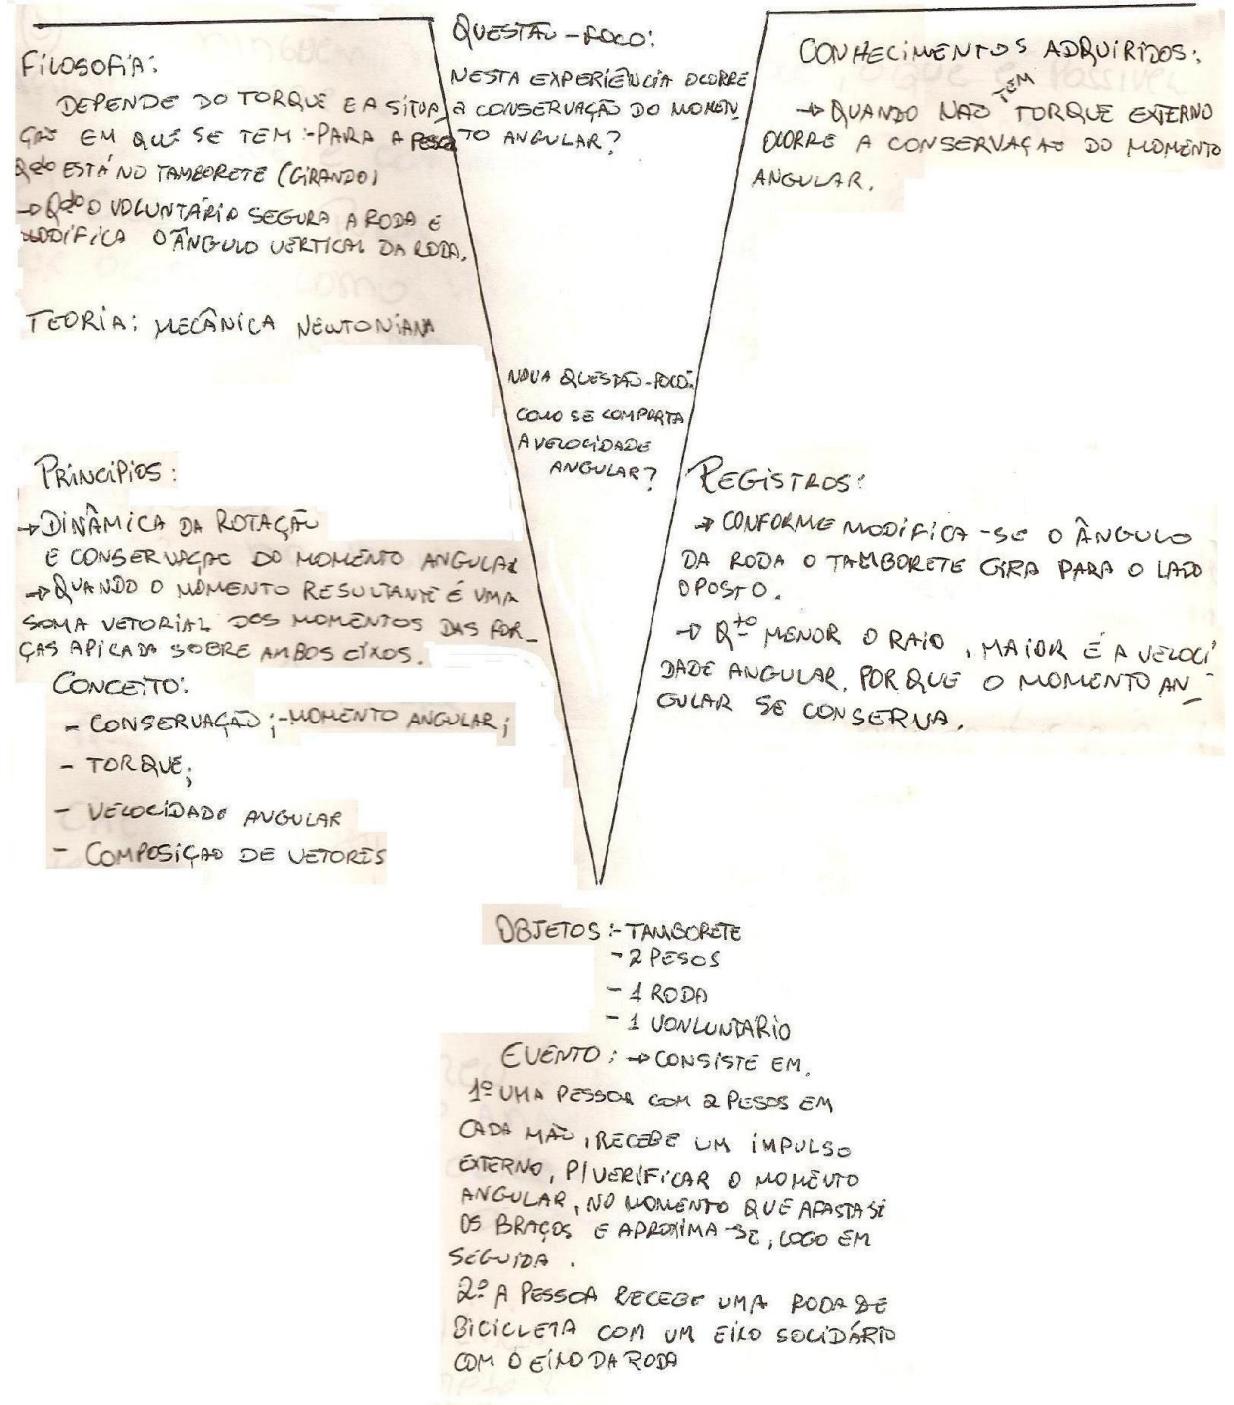 FILOSOFIA:
DEPENDE DO TORQUE E A SITUA
ÇÃO EM QUE SE TEM :-PARA A PESSOA
Qdo ESTÁ NO TAMBORETE (GIRANDO)
→ Qdo O VOLUNTÁRIO SEGURA A RODA E
MODIFICA O ÂNGULO VERTICAL DA RODA.
TEORIA: MECÂNICA NEWTONIANA
PRINCÍPIOS:
→ DINÂMICA DA ROTAÇÃO
E CONSERVAÇÃO DO MOMENTO ANGULAR
→ QUANDO O MOMENTO RESULTANTE É UMA
SOMA VETORIAL DOS MOMENTOS DAS FOR_
ÇAS APLICADA SOBRE AMBOS EIXOS.
CONCEITO:
- CONSERVAÇÃO ;-MOMENTO ANGULAR;
- TORQUE;
- VELOCIDADE ANGULAR
- COMPOSIÇÃO DE VETORES
QUESTÃO-FOCO:
NESTA EXPERIÊNCIA OCORRE
A CONSERVAÇÃO DO MOMEN_
TO ANGULAR?
NOVA QUESTÃO-FOCO:
COMO SE COMPORTA
A VELOCIDADE
ANGULAR?
CONHECIMENTOS ADQUIRIDOS:
→ QUANDO NÃO TEM TORQUE EXTERNO
OCORRE A CONSERVAÇÃO DO MOMENTO
ANGULAR.
REGISTROS:
→ CONFORME MODIFICA-SE O ÂNGULO
DA RODA O TAMBORETE GIRA PARA O LADO
OPOSTO.
→ Qto MENOR O RAIO, MAIOR É A VELOCI
DADE ANGULAR, PORQUE O MOMENTO AN_
GULAR SE CONSERVA.
OBJETOS :- TAMBORETE
- 2 PESOS
- 1 RODA
- 1 VONLUNTÁRIO
EVENTO: → CONSISTE EM.
1º UMA PESSOA COM 2 PESOS EM
CADA MÃO, RECEBE UM IMPULSO
EXTERNO, P/ VERIFICAR O MOMENTO
ANGULAR, NO MOMENTO QUE AFASTA SE
OS BRAÇOS E APROXIMA-SE, LOGO EM
SEGUIDA.
2º A PESSOA RECEBE UMA RODA DE
BICICLETA COM UM EIXO SOLIDÁRIO
COM O EIXO DA RODA